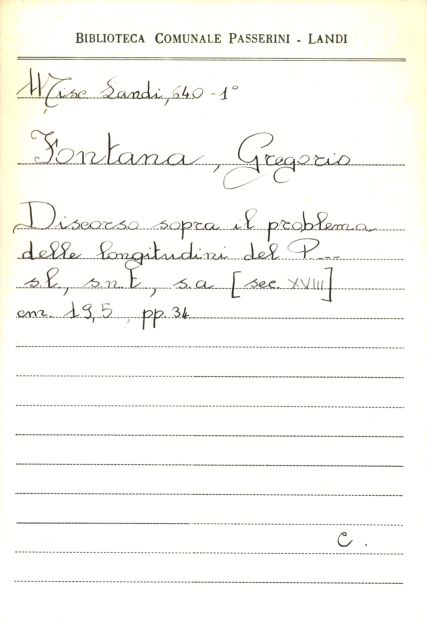 BIBLIOTECA COMUNALE PASSERINI - LANDI
Misc Landi, 640 - 1°
Fontana, Gregorio
Discorso sopra il problema
delle longitudini del P...
s.l., s.n.t., s.a [sec. XVIII]
cm. 19,5, pp. 34
C.